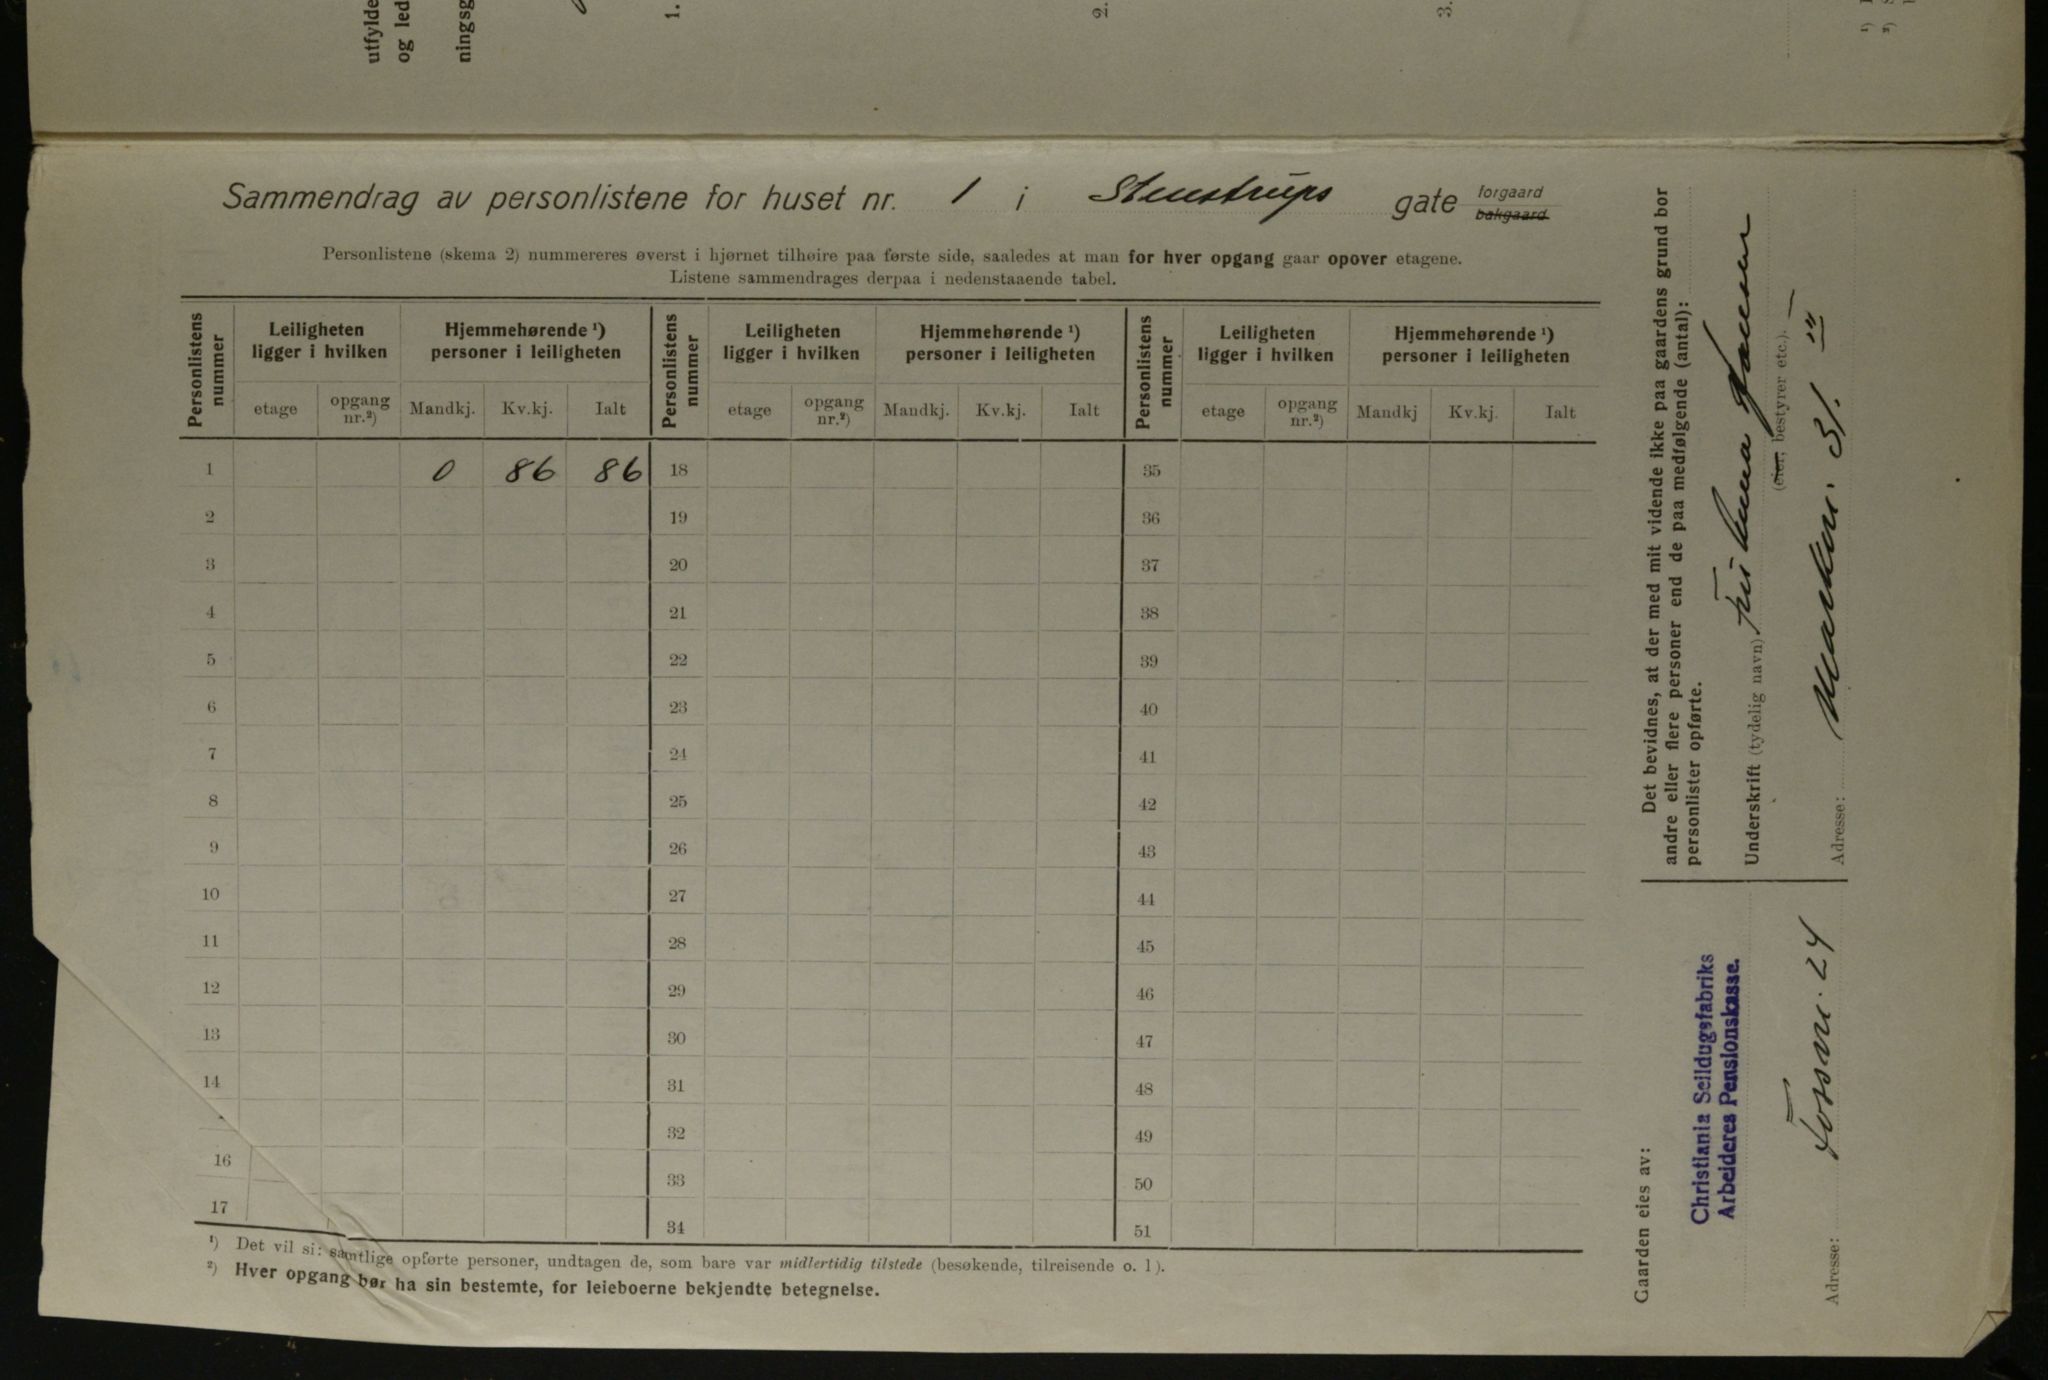 utfylde
og led
ningsg
1.
2.
3.
Sammendrag av personlistene for huset nr. 1 i Stenstrups gate forgaard
bakgaard
Personlistene (skema 2) nummereres øverst i hjørnet tilhøire paa første side, saaledes at man for hver opgang gaar opover etagene.
Listene sammendrages derpaa i nedenstaaende tabel.
Personlistens nummer Leiligheten ligger i hvilken Hjemmehørende ¹) personer i leiligheten Personlistens nummer Leiligheten ligger i hvilken Hjemmehørende ¹) personer i leiligheten Personlistens nummer Leiligheten ligger i hvilken Hjemmehørende ¹) personer i leiligheten
etage opgang nr.²) Mandkj. Kv.kj. Ialt etage opgang nr.²) Mandkj. Kv.kj. Ialt etage opgang nr.²) Mandkj Kv.kj. Ialt
1 0 86 86 18 35
2 19 36
3 20 37
4 21 38
5 22 39
6 23 40
7 24 41
8 25 42
9 26 43
10 27 44
11 28 45
12 29 46
13 30 47
14 31 48
32 49
16 33 50
17 34 51
¹) Det vil si: samtlige opførte personer, undtagen de, som bare var midlertidig tilstede (besøkende, tilreisende o. l).
²) Hver opgang bør ha sin bestemte, for leieboerne bekjendte betegnelse.
Det bevidnes, at der med mit vidende ikke paa gaardens grund bor
andre eller flere personer end de paa medfølgende (antal):
personlister opførte.
Underskrift (tydelig navn)
(eier, bestyrer etc.).
Adresse: Markvn. 31.
Gaarden eies av:
Christiania Seildugsfabriks
Arbeideres Pensionskasse.
Adresse: Fossvn. 24